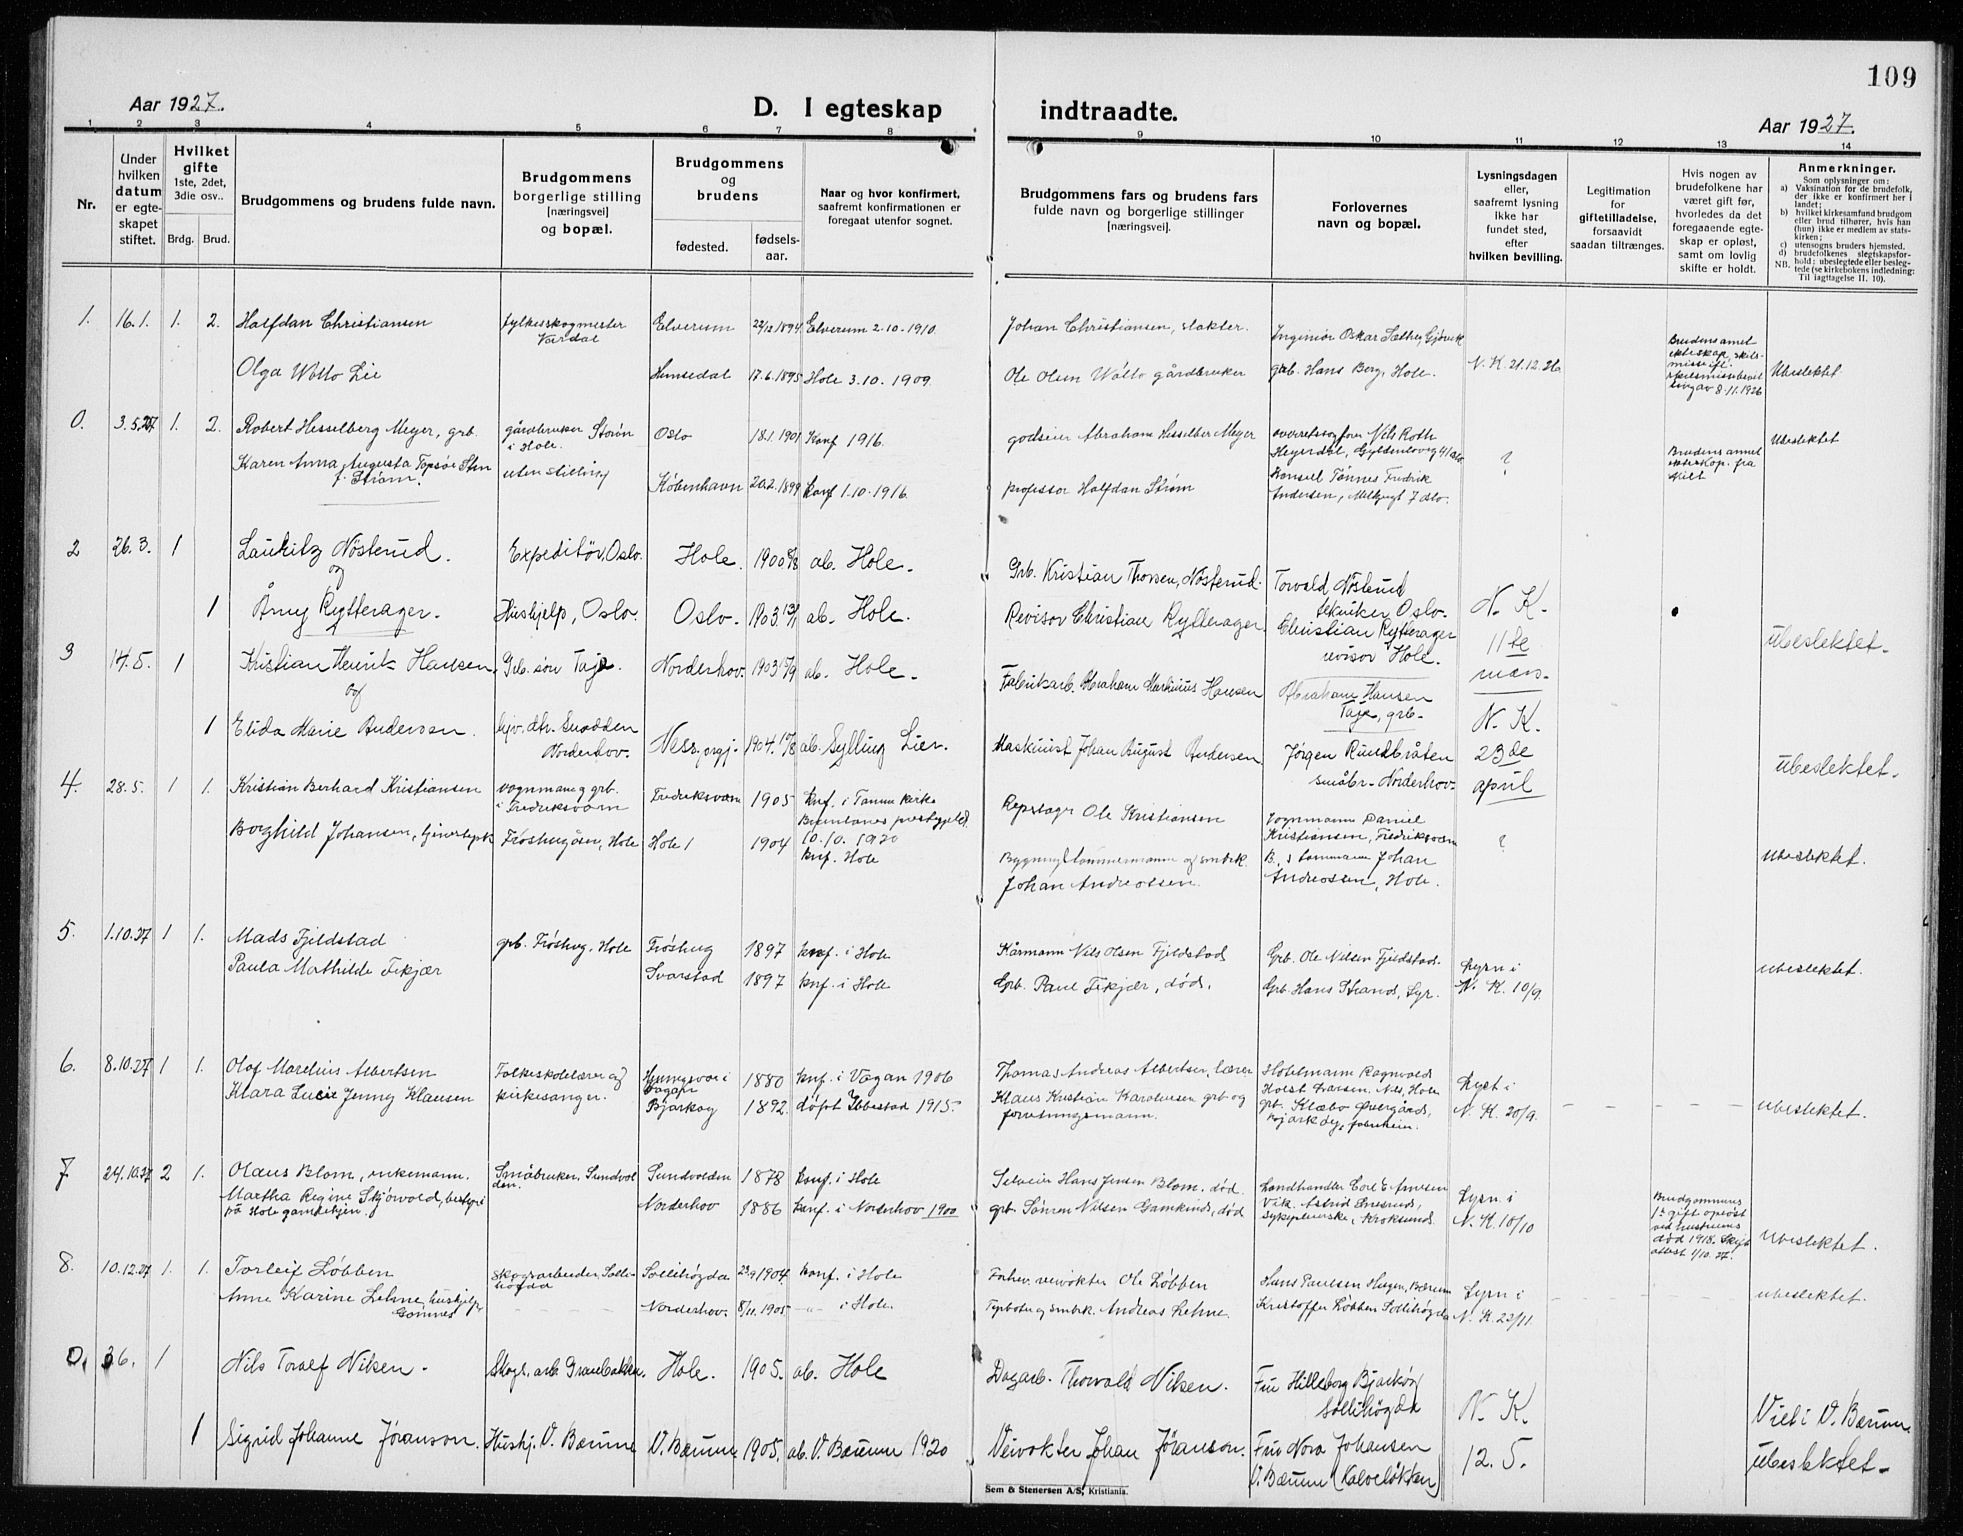 109
Aar 1927.
D. I egteskap
indtraadte.
Aar 1927.
1 2 3 4 5 6 7 8
9 10 11 12 13 14
Nr.
Under
hvilken
datum
er egte-
skapet
stiftet.
Hvilket
gifte
1ste, 2det,
3die osv..
Brdg. Brud.
Brudgommens og brudens fulde navn.
Brudgommens
borgerlige stilling
[næringsvei]
og bopæl.
Brudgommens
og
brudens
fødested.
fødsels-
aar.
Naar og hvor konfirmert,
saafremt konfirmationen er
foregaat utenfor sognet.
Brudgommens fars og brudens fars
fulde navn og borgerlige stillinger
[næringsvei].
Forlovernes
navn og bopæl.
Lysningsdagen
eller,
saafremt lysning
ikke har
fundet sted,
efter
hvilken bevilling.
Legitimation
for
giftetilladelse,
forsaavidt
saadan tiltrænges.
Hvis nogen av
brudefolkene har
været gift før,
hvorledes da det
foregaaende egte-
skap er opløst,
samt om lovlig
skifte er holdt.
Anmerkninger.
Som oplysninger om:
a) Vaksination for de brudefolk,
der ikke er konfirmert her i
landet;
b) hvilket kirkesamfund brudgom
eller brud tilhører, hvis han
(hun) ikke er medlem av stats-
kirken;
c) utensogns bruders hjemsted.
d) brudefolkenes slegtskapsfor-
hold: ubeslegtede eller besleg-
NB. tede (se kirkebokens indledning:
Til iagttagelse II. 10).
1. 16.1. 1. 2. Halfdan Christiansen fylkesskogmester Vardal Elverum 1894 Elverum 2.10.1910. Johan Christiansen, slakter. Ingeniør Oskar Sæther, Gjøvik
Olga Wøllo Lie Hemsedal 17.6.1895 Hole 3.10.1909. Ole Olsen Wøllo gårdbruker grb. Hans Berg, Hole. N.K. 21.12.26.
Brudens annet
ekteskap, skils-
misse
av 8.11.1926
Ubeslektet
0. 3.5.27 1. 2. Robert Hesselberg Meyer, grb. gårdbruker Storøn i Hole. Oslo 18.1.1901 Konf 1916. godseier Abraham Hesselber Meyer overrettssagfører Nils Roth
Heyerdal, Gyldenløvsg 41 Oslo
Karen Anna Augusta Topsøe
f. Strøm. uten stilling København 20.2.1899 konf 1.10.1916. professor Halfdan Strøm Konsul Tønnes Fredrik
Andersen, 7 Oslo.
?
Brudens annet
ekteskap. fra
skilt
Ubeslektet
2 26.3. 1 Lauritz Nøsterud. Expeditør, Oslo. Hole. 1900 ab. Hole. Grb. Kristian Thorsen, Nøsterud. Torvald Nøsterud
tekniker Oslo.
og
1 Årny Rytterager. Hushjelp, Oslo. Oslo. 1903 ab. Hole. Revisor Christian Rytterager. Christian Rytterager
revisor Hole.
N. K.
11te
mars.
ubeslektet.
3 14.5. 1 Kristian Henrik Hansen, Grb. søn Norderhov. 1903 ab. Hole. Fabrikarb. Abraham Markinius Hansen Abraham Hansen
grb.
og
1 Elida Marie Andersen. hjv. dtr. Snadden
Norderhov. Ness, prgj. 1904 ab. Sylling Lier. Maskinist Johan August Andersen. Jørgen Rundbråten
småbr. Norderhov.
N. K.
23de
april
ubeslektet.
4. 28.5. 1 1. Kristian Berhard Kristiansen vognmann grb.
i Fredriksvern Fredriksvern 1905 knf. i Tanum kirke
Brunlanes prestegjeld
10.10.1920 Repslager Ole Kristiansen Vognmann Daniel
Kristiansen, Fredriksvern
Borghild Johansen, tjenerpike Frøshugåsen, Hole Hole 1904 knf. Hole Bygningstømmermann og smbr.
Johan Andreassen. Johan
Andreassen, Hole.
?
ubeslektet.
5. 1.10.27 1 1. Mads Fjeldstad grb. Frøshug, Hole Frøshug 1897 knf. i Hole Kårmann Nils Olsen Fjeldstad Grb. Ole Nilsen Fjeldstad.
Paula Mathilde Fekjær Svarstad 1897 knf. i Hole Grb. Paul Fekjær, død. Grb. Hans Strand, Lyr.
Lysn i
N. K. 10/9.
ubeslektet.
6. 8.10.27 1 1. Olaf Marelius Albertsen Folkeskolelærer og
kirkesanger. Henningsvær i
Vågan 1880 knf. i Vågan 1906 Thomas Andreas Albertsen, lærer Ragnvald
Holst Larsen, Nes, Hole
Klara Lucie Jenny Klausen Bjarkøy 1892. døpt Ibbestad 1915. Klaus Kristian Karolussen grb og
forretningsmann. grb. Klæbo Øvergård,
Bjarkøy,
Lyst i
N. K. 20/9.
ubeslektet.
7 24.10.27 2 1. Olaus Blom, enkemann. Småbruker, Sundvol
den. Sundvolden 1878 konf. i Hole Selveier Hans Jensen Blom, død. Landhandler Carl E. Arnesen
Vik.
Martha Regine Skjørvold, bestyri
på Hole gamlehjem. Norderhov 1886 konf. i Norderhov 1900 grb. Sønen Nilsen Gamkinds, død Astrid
sykepleierske, Kroksund.
Lysn. i
N. K. 10/10
Brudgommens
1ste gift opløst
ved hustruens
død 1918. Skift
attest 1/10.27.
Ubeslektet.
8. 10.12.27 1. 1. Torleif Løbben Skogsarbeider, Solli-
høgda Sollihøgda 1904 konf. i Hole Forhev. veivokter Ole Løbben Hans Paulsen Haugen, Bærum
Anne Karine Lehne, hushjelp,
Gomnes Norderhov. 8/11.1905 -"- i Hole. Andreas Lehne. Kristoffer Løbben Sollihøgda
Lysn i
N. K. 22/11
ubeslektet.
0. 6. 1 Nils Toralf Viken. Skogs. arb. Hole. 1905. ab. Hole Dagarb. Thorvald Viken. Fru Hilleborg Bjarkøy
Sollihøgda
1 Sigrid Johanne Jöranson. Hushj. V. Bærum V. Bærum 1905. ab. V. Bærum 1920 Veivokter Johan Jöranson. Fru Nora Johansen
V. Bærum (Kalveløkken)
N. K.
12.5.
Viet i V. Bærum.
ubeslektet.
Sem & Stenersen A/S, Kristiania.